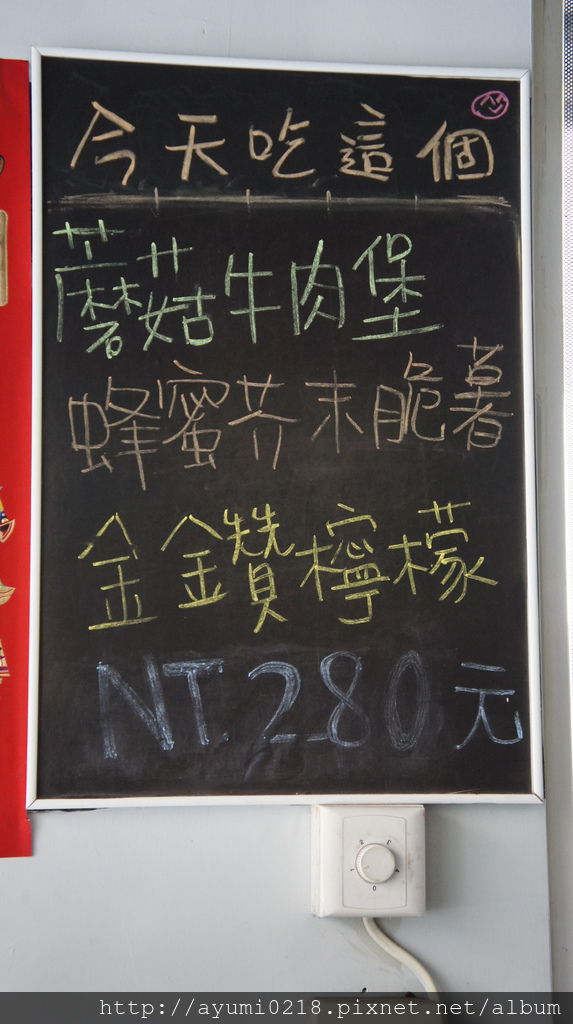 今天吃這個
蘑菇牛肉堡
蜂蜜芥末脆薯
金鑽檸檬
NT.280元
http://ayumi0218.pixnet.net/album